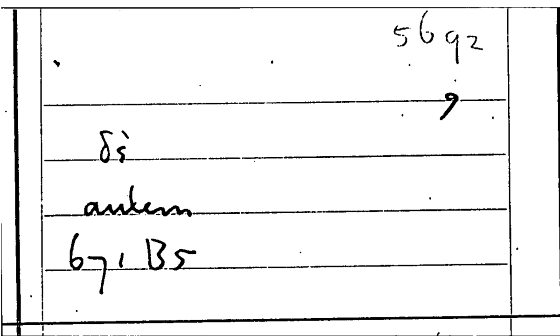 5692
δὲ
autem
671 B5